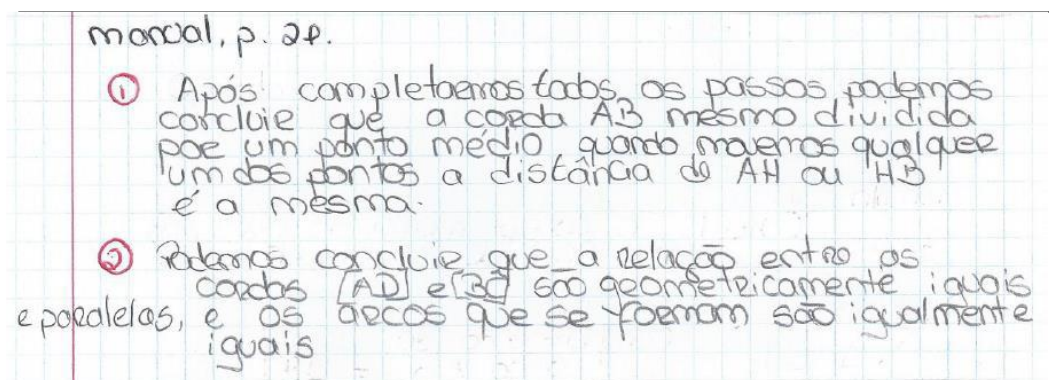 manual, p. 28.
① Após completarmos todos os passos podemos
concluir que a corda AB mesmo dividida
por um ponto médio quando movemos qualquer
um dos pontos a distância de AH ou HB
é a mesma.
② Podemos concluir que a relação entre as
cordas [AD] e [BC] são geometricamente iguais
e paralelas, e os arcos que se formam são igualmente
iguais